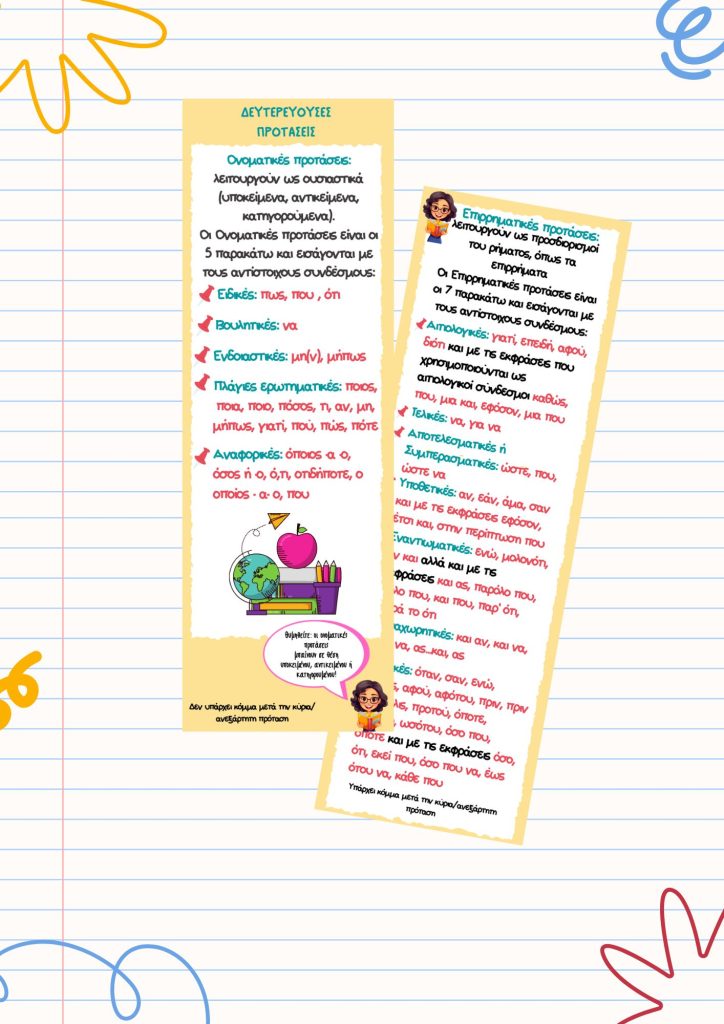 ΔΕΥΤΕΡΕΥΟΥΣΕΣ
ΠΡΟΤΑΣΕΙΣ
Ονοματικές προτάσεις:
λειτουργούν ως ουσιαστικά
(υποκείμενα, αντικείμενα,
κατηγορούμενα).
Οι Ονοματικές προτάσεις είναι οι
5 παρακάτω και εισάγονται με
τους αντίστοιχους συνδέσμους:
Ειδικές: πως, που , ότι
Βουλητικές: να
Ενδοιαστικές: μη(ν), μήπως
Πλάγιες ερωτηματικές: ποιος,
ποια, ποιο, πόσος, τι, αν, μη,
μήπως, γιατί, πού, πώς, πότε
Αναφορικές: όποιος -α -ο,
όσος ή -ο, ό,τι, οτιδήποτε, ο
οποίος - α- ο, που
Θυμηθείτε: οι ονοματικές
προτάσεις
μπαίνουν σε θέση
υποκειμένου, αντικειμένου ή
κατηγορουμένου!
Δεν υπάρχει κόμμα μετά την κύρια/
ανεξάρτητη πρόταση
Επιρρηματικές προτάσεις:
λειτουργούν ως προσδιορισμοί
του ρήματος, όπως τα
επιρρήματα
Οι Επιρρηματικές προτάσεις είναι
οι 7 παρακάτω και εισάγονται με
τους αντίστοιχους συνδέσμους:
Αιτιολογικές: γιατί, επειδή, αφού,
διότι και με τις εκφράσεις που
χρησιμοποιούνται ως
αιτιολογικοί σύνδεσμοι καθώς,
που, μια και, εφόσον, μια που
Τελικές: να, για να
Αποτελεσματικές ή
Συμπερασματικές: ώστε, που,
ώστε να
Υποθετικές: αν, εάν, άμα, σαν
και με τις εκφράσεις εφόσον,
έτσι και, στην περίπτωση που
Εναντιωματικές: ενώ, μολονότι,
και αλλά και με τις
και ας, παρόλο που,
που, και που, παρ' ότι,
το ότι
και αν, και να,
να, ας...και, ας
όταν, σαν, ενώ,
αφού, αφότου, πριν, πριν
προτού, όποτε,
ωσότου, όσο που,
οπότε και με τις εκφράσεις όσο,
ότι, εκεί που, όσο που να, έως
ότου να, κάθε που
Υπάρχει κόμμα μετά την κύρια/ανεξάρτητη
πρόταση